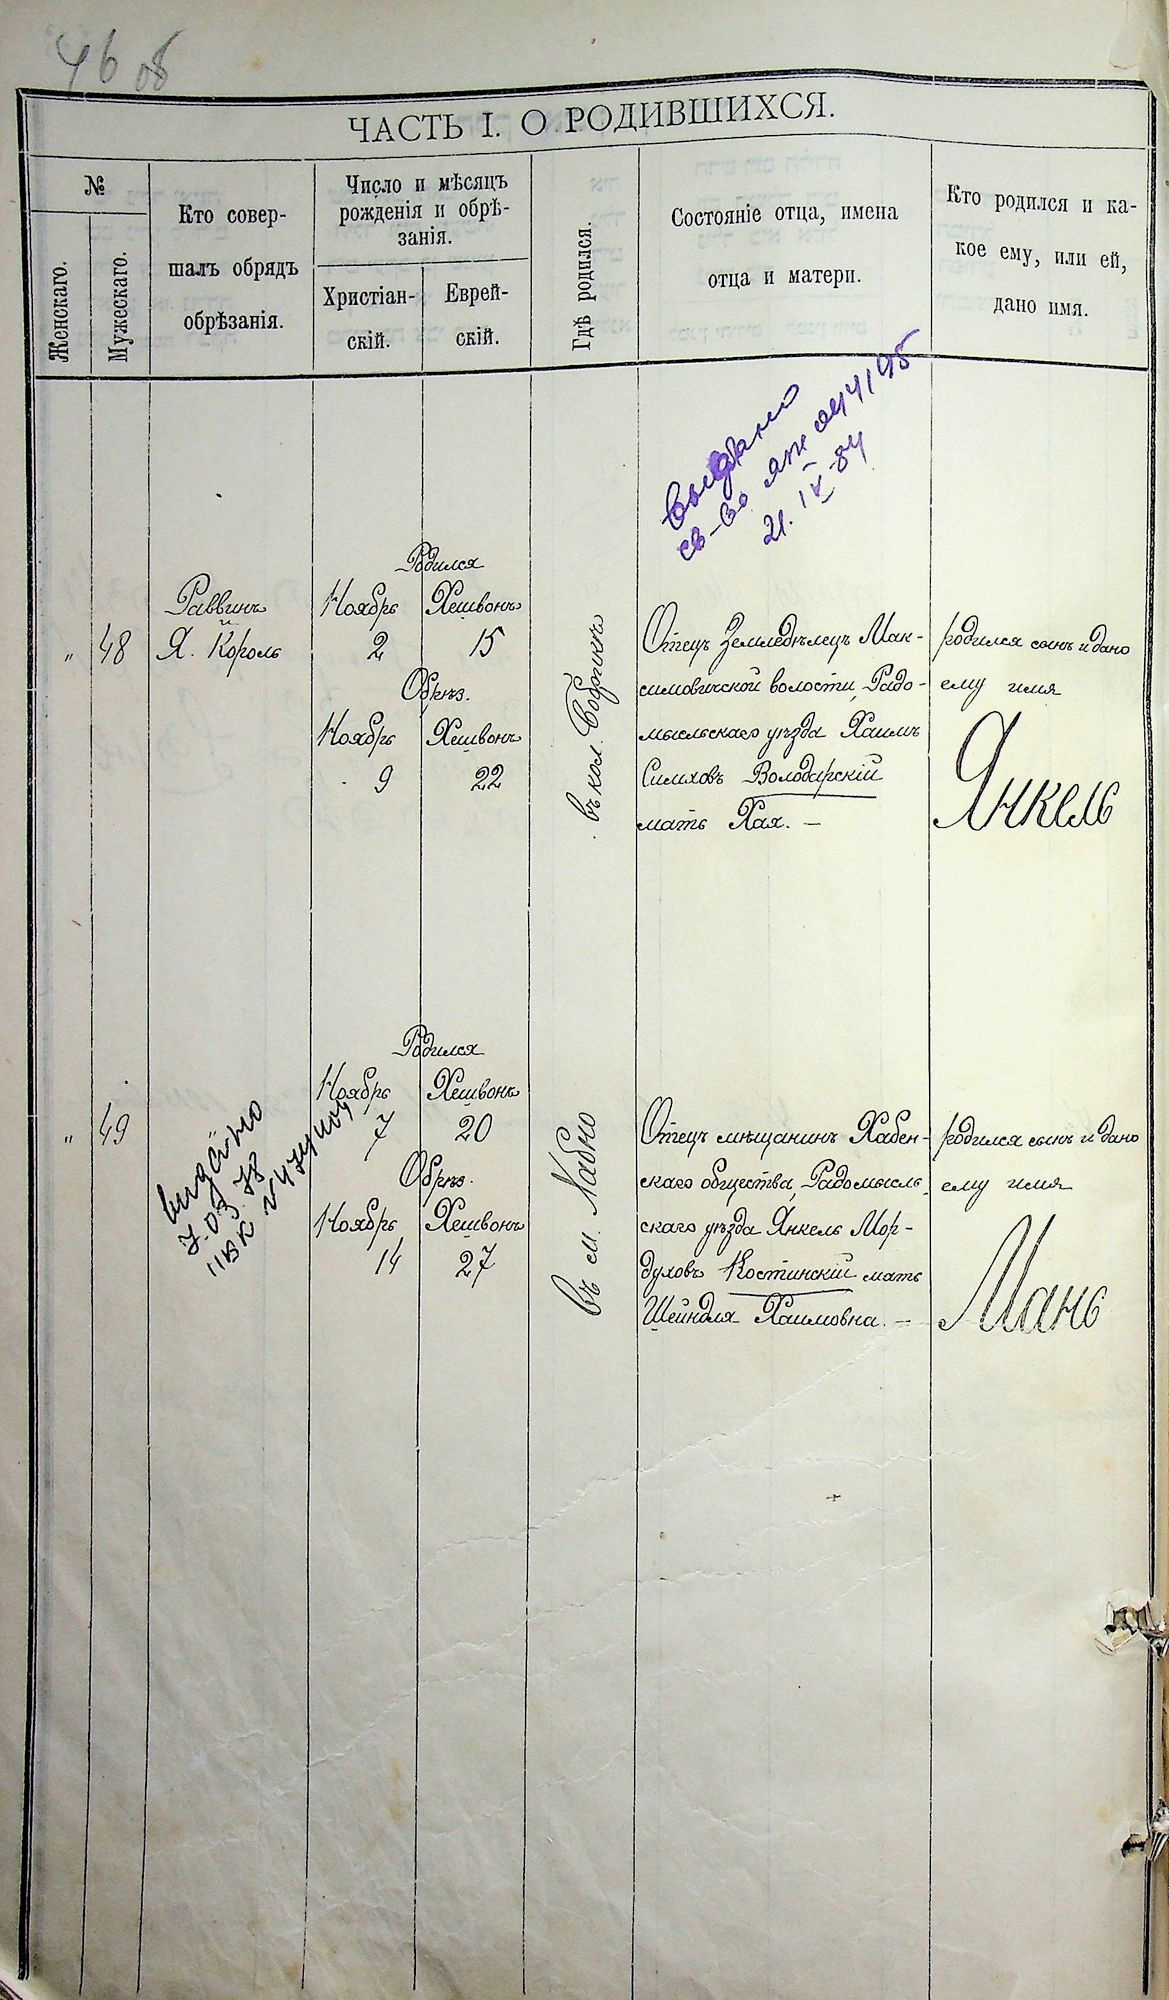 46 об
ЧАСТЬ I. О РОДИВШИХСЯ.
№
Женскаго.
Мужескаго.
Кто совер-
шалъ обрядъ
обрѣзанія.
Число и мѣсяцъ
рожденія и обрѣ-
занія.
Христіан-
скій.
Еврей-
скій.
Гдѣ родился.
Состояніе отца, имена
отца и матери.
Кто родился и ка-
кое ему, или ей,
дано имя.
Выдано
св-во
21. IX 84
"
48
Раввинъ
и
Я. Король
Родился
Ноябрь Хешвонъ
2 15
Обрѣз.
Ноябрь Хешвонъ
9 22
въ кол. Бобрикъ
Отецъ Земледѣлецъ Мак-
симовичской волости, Радо-
мысльскаго уѣзда Хаимъ
Симховъ Володарскій
мать Хая. —
родился сынъ и дано
ему имя
Янкель
"
49
видано
7.03.78
Родился
Ноябрь Хешвонъ
7 20
Обрѣз.
Ноябрь Хешвонъ
14 27
въ м. Хабно
Отецъ мѣщанинъ Хабен-
скаго общества, Радомысль-
скаго уѣзда Янкель Мор-
духовъ Костинскій мать
Шейндля Хаимовна. —
родился сынъ и дано
ему имя
Мань